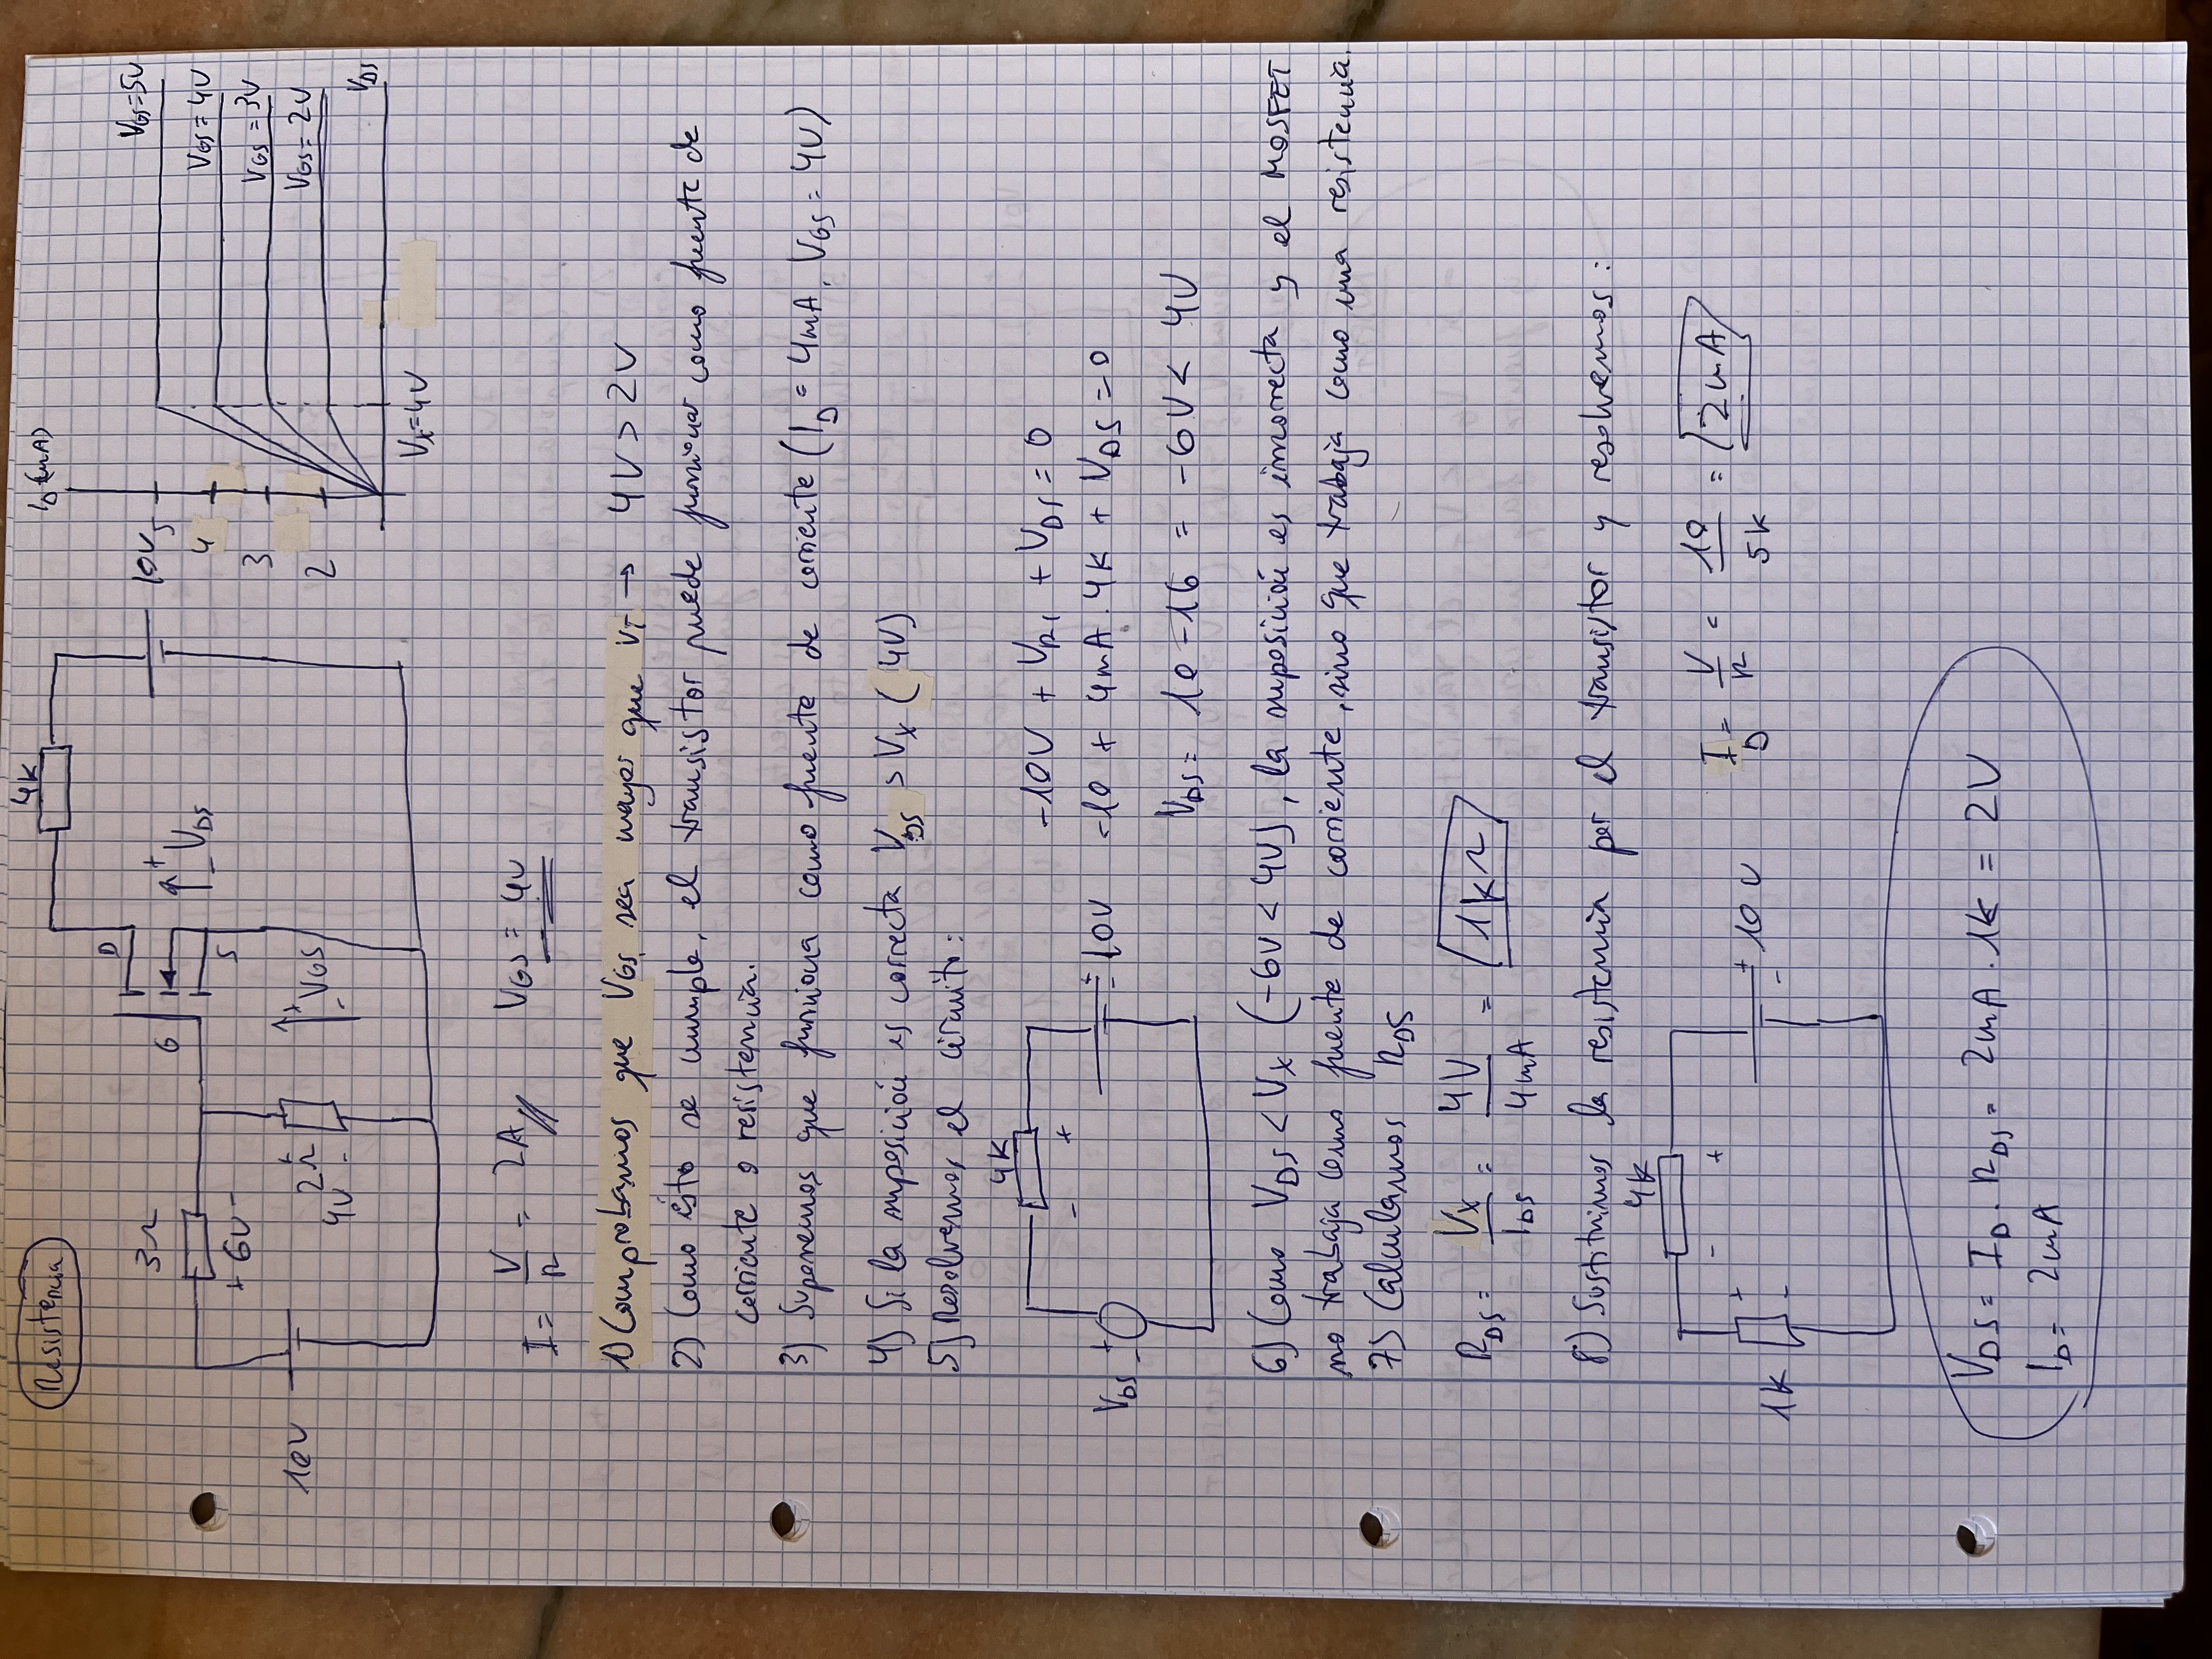 Resistencia
4K
I_D (mA)
3Ω
+ 6V -
10V
2Ω
4V
+
-
G
D
S
+
-
V_DS
+
-
V_GS
10V
5
4
3
2
V_GS=5V
V_GS=4V
V_GS=3V
V_GS=2V
V_DS
V_X=4V
I = V/R = 2A // V_GS = 4V
1) Comprobamos que V_GS sea mayor que V_T → 4V > 2V
2) Como ésto se cumple, el transistor puede funcionar como fuente de
corriente o resistencia.
3) Suponemos que funciona como fuente de corriente (I_D = 4mA, V_GS = 4V)
4) Si la suposición es correcta V_DS > V_X (4V)
5) Resolvemos el circuito:
4K
- +
V_DS
+
-
+
-
10V
-10V + V_R1 + V_DS = 0
-10 + 4mA · 4K + V_DS = 0
V_DS = 10 - 16 = -6V < 4V
6) Como V_DS < V_X (-6V < 4V), la suposición es incorrecta y el MOSFET
no trabaja como fuente de corriente, sino que trabaja como una resistencia.
7) Calculamos R_DS
R_DS = V_X/I_DS = 4V/4mA = 1KΩ
8) Sustituimos la resistencia por el transistor y resolvemos:
4K
- +
1K
+
-
+
-
10V
I_D = V/R = 10/5K = 2mA
V_DS = I_D · R_DS = 2mA · 1K = 2V
I_D = 2mA